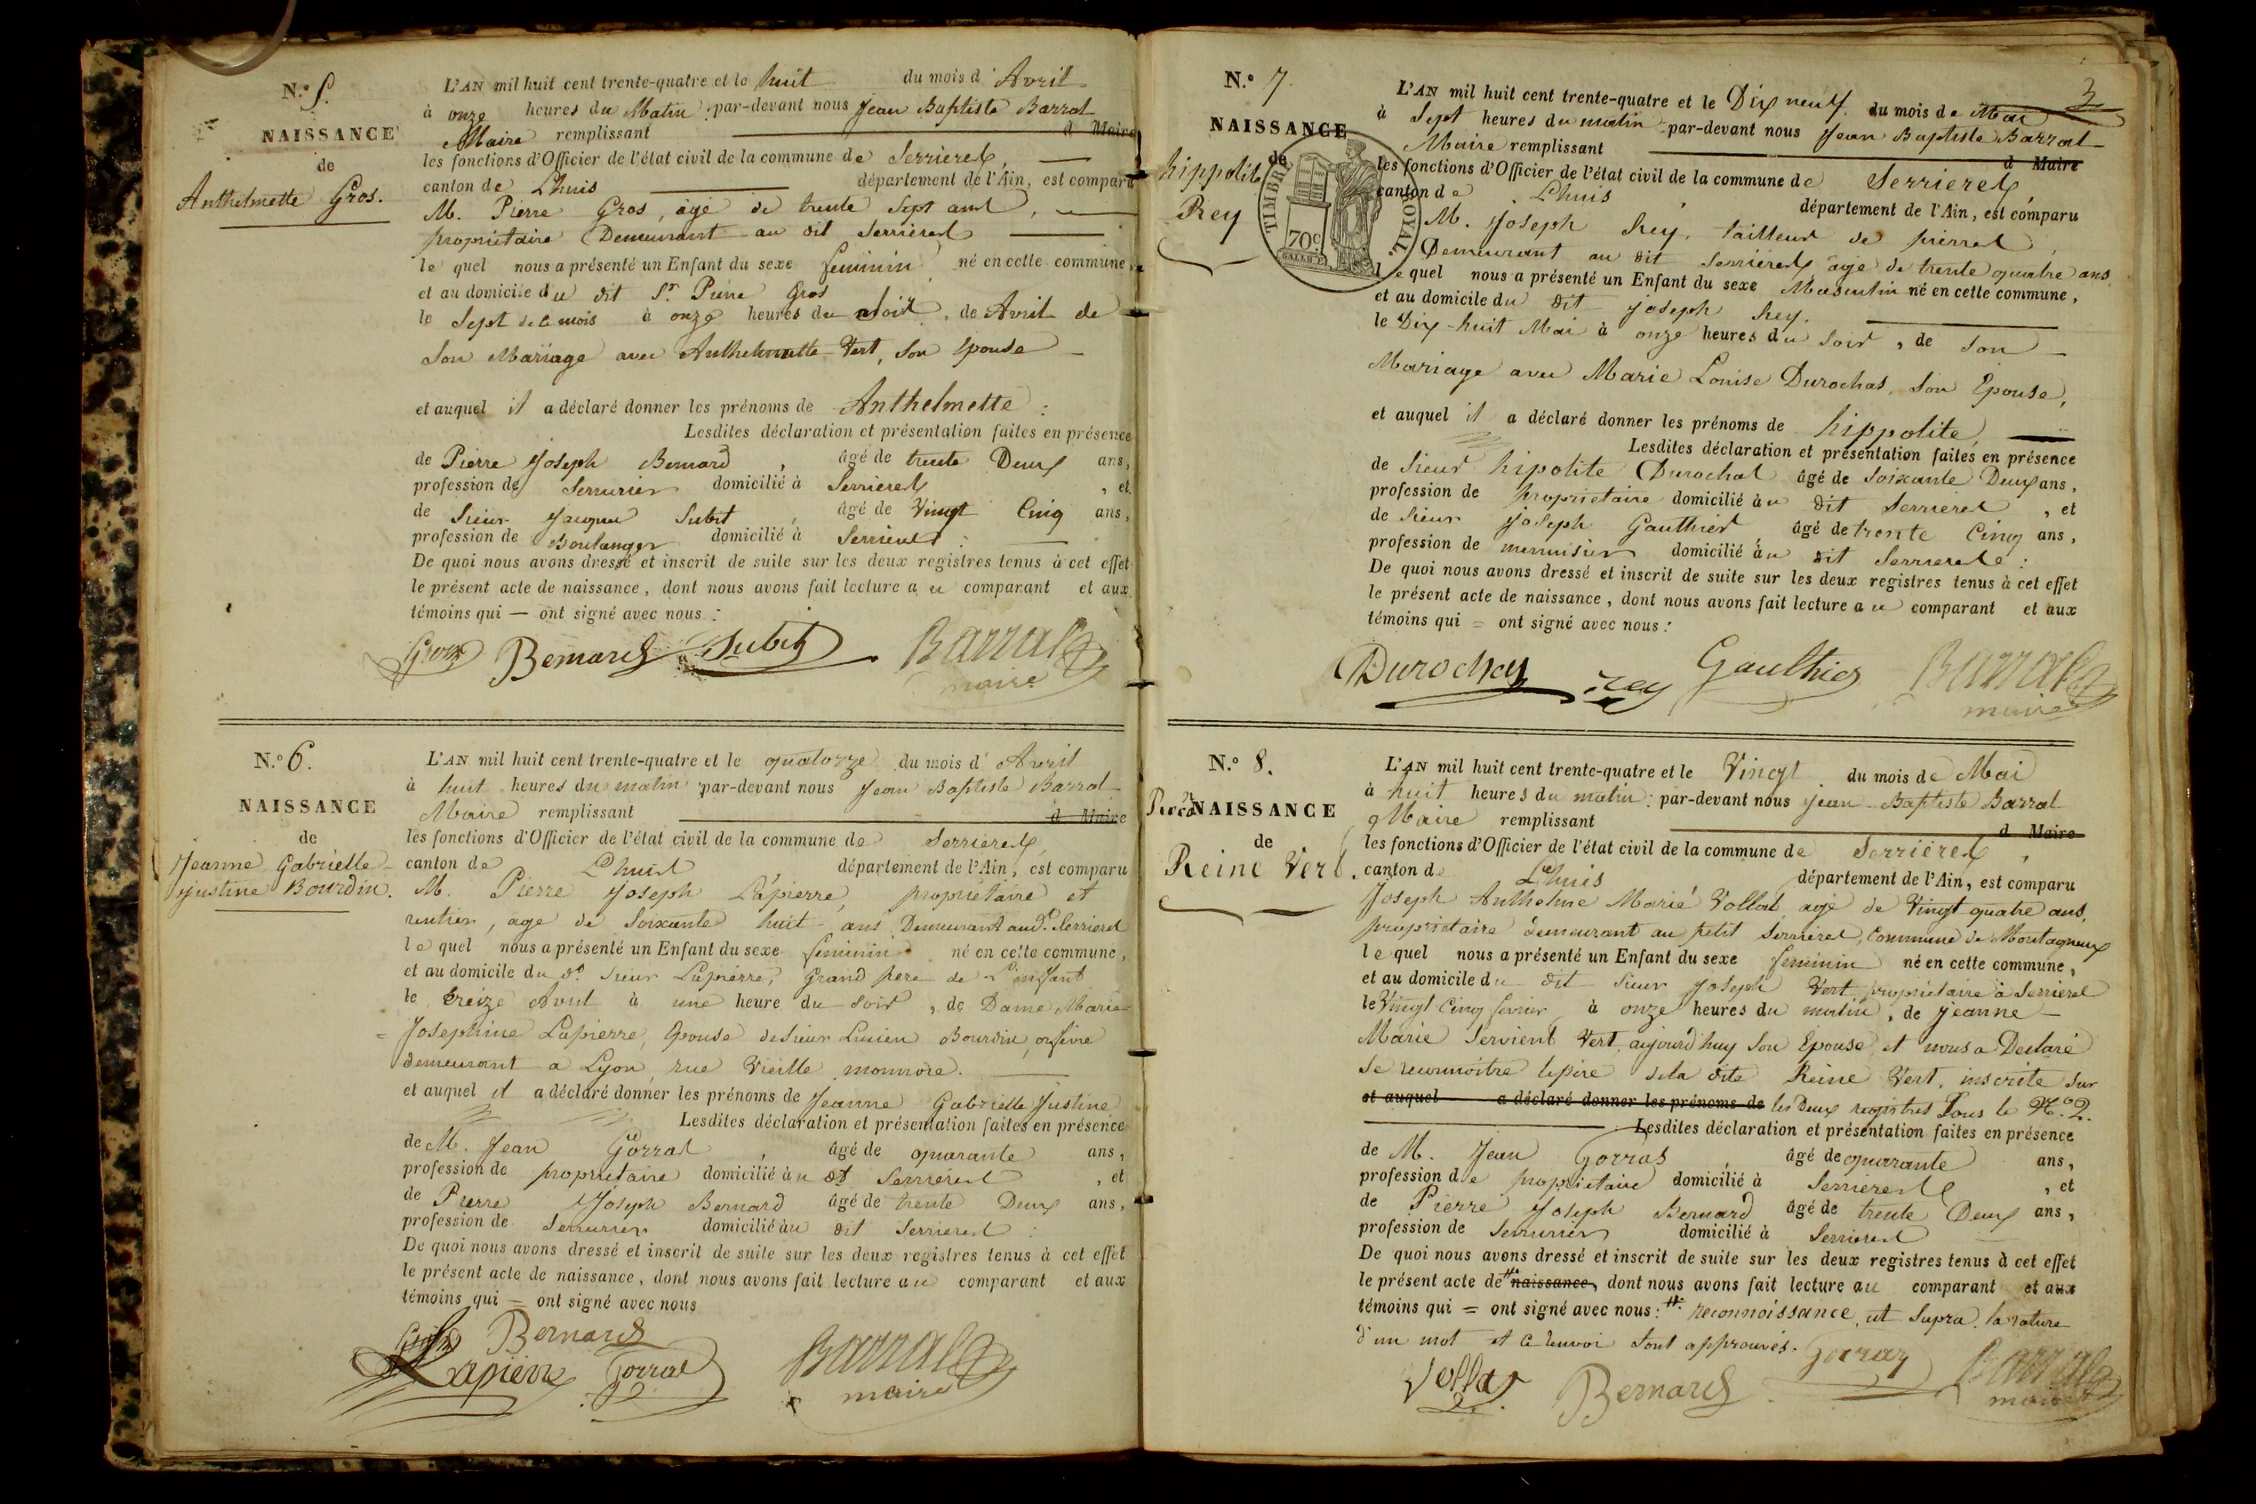 N.º 5.
NAISSANCE
de
Anthelmette Gros.
L'AN mil huit cent trente-quatre et le huit du mois d'Avril
à onze heures du Matin : par-devant nous Jean Baptiste Barral
Maire remplissant d Maire
les fonctions d'Officier de l'état civil de la commune de Serrieres,
canton de Lhuis département de l'Ain, est comparu
M. Pierre Gros, agé de trente sept ans,
propriétaire Demeurant au dit Serrieres
le quel nous a présenté un Enfant du sexe feminin né en cette commune,
et au domicile du dit Sr. Pierre Gros
le Sept de ce mois à onze heures du soir, de Avril de
Son Mariage avec Anthelmette Vert, Son Epouse
et auquel il a déclaré donner les prénoms de Anthelmette :
Lesdites déclaration et présentation faites en présence
de Pierre Joseph Bernard, âgé de trente Deux ans,
profession de Serrurier domicilié à Serrieres, et
de Sieur Jacques Subit, âgé de Vingt Cinq ans,
profession de Boulanger domicilié à Serrieres :
De quoi nous avons dressé et inscrit de suite sur les deux registres tenus à cet effet
le présent acte de naissance, dont nous avons fait lecture au comparant et aux
témoins qui — ont signé avec nous :
Gros Bernard Subit Barral
maire
N.º 6.
NAISSANCE
de
Jeanne Gabrielle
Justine Bourdin.
L'AN mil huit cent trente-quatre et le quatorze du mois d'Avril
à huit heures du matin par-devant nous Jean Baptiste Barral
Maire remplissant d Maire
les fonctions d'Officier de l'état civil de la commune de Serrieres
canton de Lhuis département de l'Ain, est comparu
M. Pierre Joseph Lapierre, propriétaire et
rentier, age de Soixante huit ans Demeurant aud. Serrieres
le quel nous a présenté un Enfant du sexe feminin né en cette commune,
et au domicile du d. sieur Lapierre, Grand pere de enfant
le treize Avril à une heure du soir, de Dame Marie
Josephine Lapierre, Epouse de Sieur Lucien Bourdin, orfèvre
demeurant a Lyon, rue Vieille monnoie.
et auquel il a déclaré donner les prénoms de Jeanne Gabrielle Justine
Lesdites déclaration et présentation faites en présence
de M. Jean Gorras, âgé de quarante ans,
profession de propriétaire domicilié au dt Serrieres, et
de Pierre Joseph Bernard âgé de trente Deux ans,
profession de Serrurier domicilié au dit Serrieres :
De quoi nous avons dressé et inscrit de suite sur les deux registres tenus à cet effet
le présent acte de naissance, dont nous avons fait lecture au comparant et aux
témoins qui = ont signé avec nous
Bernard
Lapierre Gorras Barral
maire
3
N.º 7.
NAISSANCE
de
hippolite
Rey
TIMBRE ROYAL
70c
L'AN mil huit cent trente-quatre et le Dix neuf du mois de Mai
à Sept heures du matin par-devant nous Jean Baptiste Barral
Maire remplissant d Maire
les fonctions d'Officier de l'état civil de la commune de Serrieres
canton de Lhuis, département de l'Ain, est comparu
M. Joseph Rey, tailleur de pierres,
Demeurant au dit Serrieres agé de trente quatre ans
le quel nous a présenté un Enfant du sexe Masculin né en cette commune,
et au domicile du dit Joseph Rey.
le Dix-huit Mai à onze heures du soir, de son
Mariage avec Marie Louise Durochas, Son Epouse,
et auquel il a déclaré donner les prénoms de hippolite,
Lesdites déclaration et présentation faites en présence
de Sieur hipolite Durochas âgé de soixante Deux ans,
profession de propriétaire domicilié au dit Serrieres, et
de Sieur Joseph Gauthier, âgé de trente Cinq ans,
profession de menuisier domicilié au dit Serrieres :
De quoi nous avons dressé et inscrit de suite sur les deux registres tenus à cet effet
le présent acte de naissance, dont nous avons fait lecture au comparant et aux
témoins qui = ont signé avec nous :
Durochas Rey Gauthier Barral
maire
N.º 8.
NAISSANCE
de
Reine Vert.
L'AN mil huit cent trente-quatre et le Vingt du mois de Mai
à huit heures du matin : par-devant nous jean Baptiste Barral
Maire remplissant d Maire
les fonctions d'Officier de l'état civil de la commune de Serrières,
canton de Lhuis département de l'Ain, est comparu
Joseph Anthelme Marie Vollat, agé de Vingt quatre ans,
propriétaire demeurant au petit Serrieres, Commune de Montagneux
le quel nous a présenté un Enfant du sexe feminin né en cette commune,
et au domicile du dit sieur Joseph Vert propriétaire à Serrieres
le Vingt Cinq fevrier à onze heures du matin, de jeanne
Marie Servient Vert, aujourd'huy Son Epouse, et nous a Declaré
Se reconnoitre le père de la dite Reine Vert, inscrite sur
et auquel a déclaré donner les prénoms de les Deux registres Sous le N.º 2.
Lesdites déclaration et présentation faites en présence
de M. Jean Gorras, âgé de quarante ans,
profession de propriétaire domicilié à Serrieres, et
de Pierre Joseph Bernard âgé de trente Deux ans,
profession de Serrurier domicilié à Serrieres
De quoi nous avons dressé et inscrit de suite sur les deux registres tenus à cet effet
le présent acte de naissance, dont nous avons fait lecture au comparant et aux
témoins qui = ont signé avec nous : # reconnoissance, ut Supra. la rature
d'un mot et ce renvoi Sont approuvés.
Vollat Bernard Gorras Barral
maire